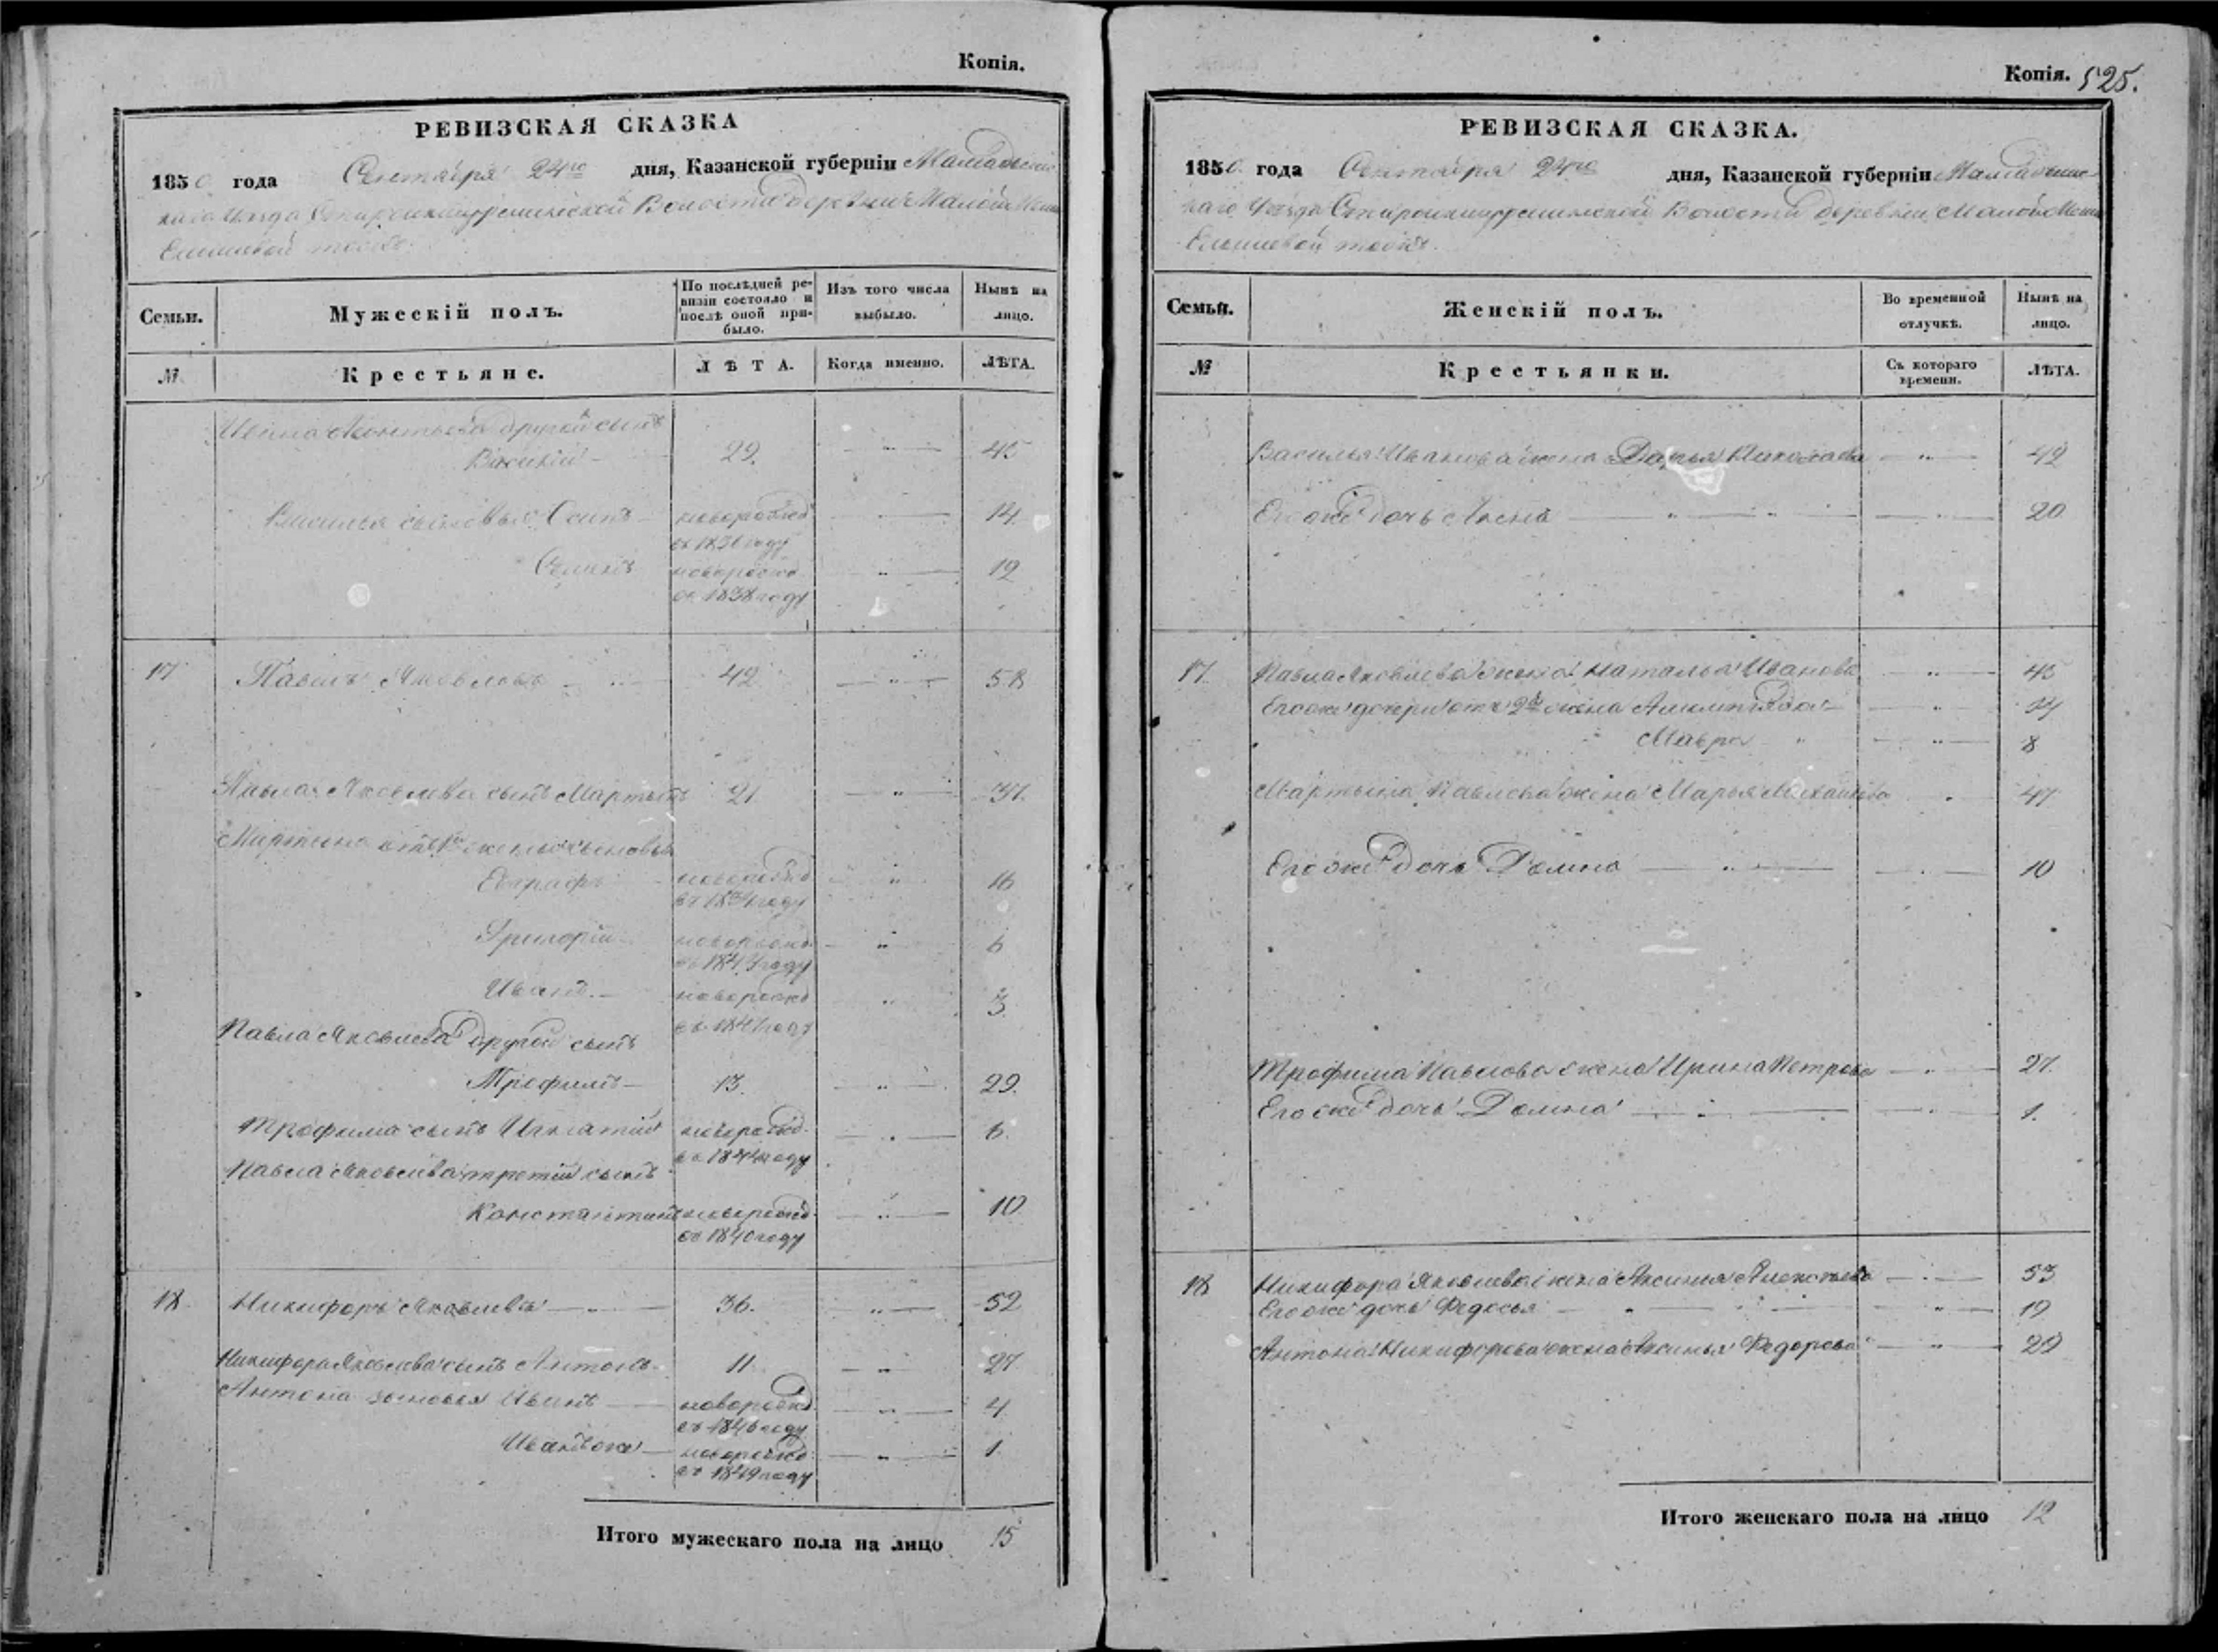 Копія.
РЕВИЗСКАЯ СКАЗКА
1850 года Сентября 24го дня, Казанской губерніи Мамадышс
каго Уезда Волости деревни Малой
тожъ.
Семьи. Мужескій полъ. По послѣдней ревизіи состояло и послѣ оной прибыло. Изъ того числа выбыло. Нынѣ на лицо.
№ Крестьяне. ЛѢТА. Когда именно. ЛѢТА.
Ивана Леонтьева другой сынъ
Василій 29. 45
Василья сыновья Осипъ новорожд 14.
въ 1836 году
новорожд 12
въ 1838 году
17 Павелъ Яковлевъ 42 58
Павла Яковлева сынъ Мартынъ 21. 37.
Мартына отъ жены сыновья
Евграфъ новорожд 16
въ 1834 году
Григорій новорожд 6
году
Иванъ новорожд 3.
въ 1847 году
Павла Яковлева другой сынъ
Трофимъ 13. 29.
Трофима сынъ Игнатій новорожд. 6.
въ 1844 году
Павла Яковлева третій сынъ
Константинъ новорожд. 10
въ 1840 году
18. Никифоръ Яковлевъ 36. 52
Никифора Яковлева сынъ Антонъ 11. 27
Антона сыновья Иванъ новорожд. 4
въ 1846 году
Иванъ же новорожд. 1
въ 1849 году
Итого мужескаго пола на лицо 15
Копія. 525.
РЕВИЗСКАЯ СКАЗКА.
1850 года Сентября 24го дня, Казанской губерніи Мамадышс-
каго Уезда Волости деревни Малой
тожъ.
Семьи. Женскій полъ. Во временной отлучкѣ. Нынѣ на лицо.
№ Крестьянки. Съ котораго времени. ЛѢТА.
Василья Иванова жена Дарья Николаева 42
Его же дочь 20
17. Павла Яковлева жена Наталья Иванова 45
Его же дочери отъ 2й жены
Мавра 8
Мартына Павлова жена Марья Михайлова 47
Его же дочь Домна 10
Трофима Павлова жена Ирина Петрова 27.
Его же дочь Домна 1.
18 Никифора Яковлева жена Аксинья Алексѣева 53
Его же дочь Федосья 19
Антона Никифорова жена Аксинья Федорова 29
Итого женскаго пола на лицо 12